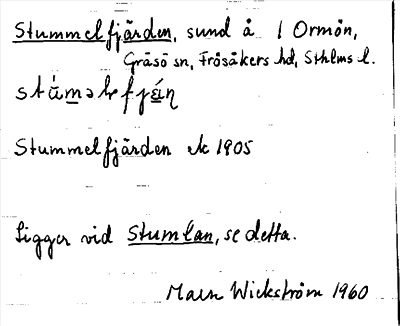 Stummelfjärden, sund å l Ormön,
Gräsö sn, Frösåkers hd, Sthlms l.
Stummelfjärden ek 1905
Ligger vid Stumlan, se detta.
Wickström 1960